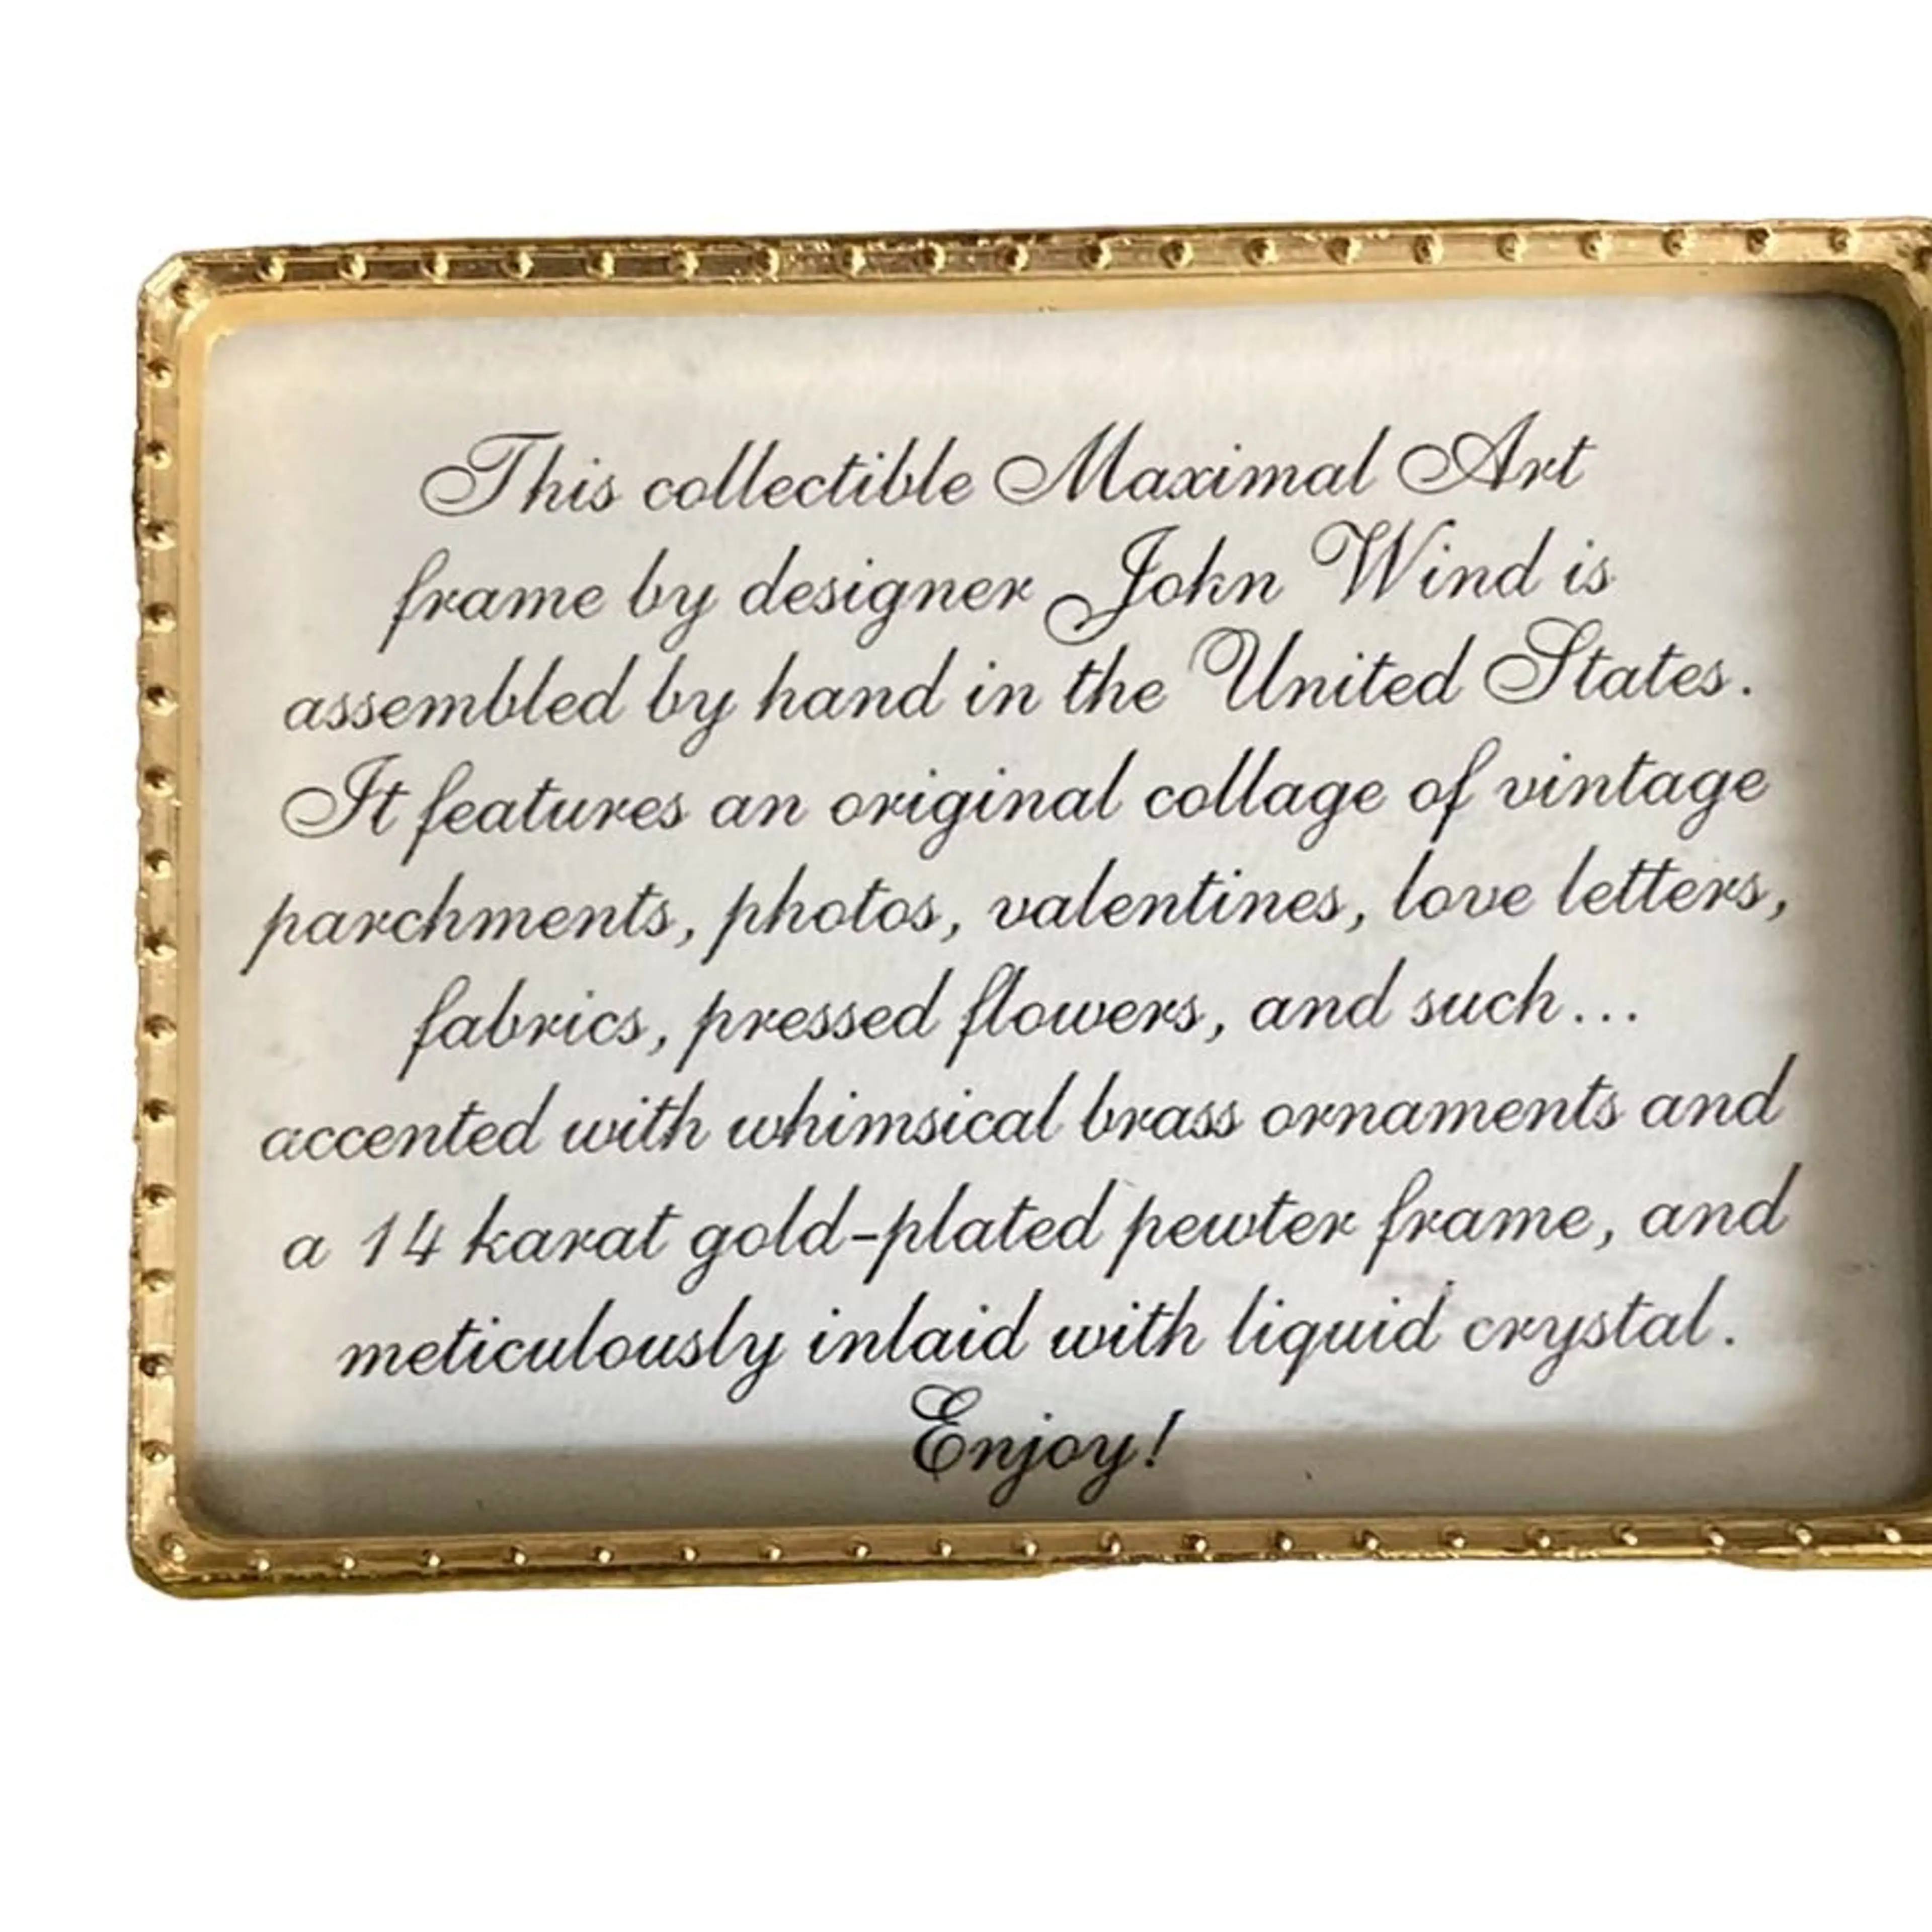 This collectible Maximal Art
frame by designer John Wind is
assembled by hand in the United States.
It features an original collage of vintage
parchments, photos, valentines, love letters,
fabrics, pressed flowers, and such...
accented with whimsical brass ornaments and
a 14 karat gold-plated pewter frame, and
meticulously inlaid with liquid crystal.
Enjoy!